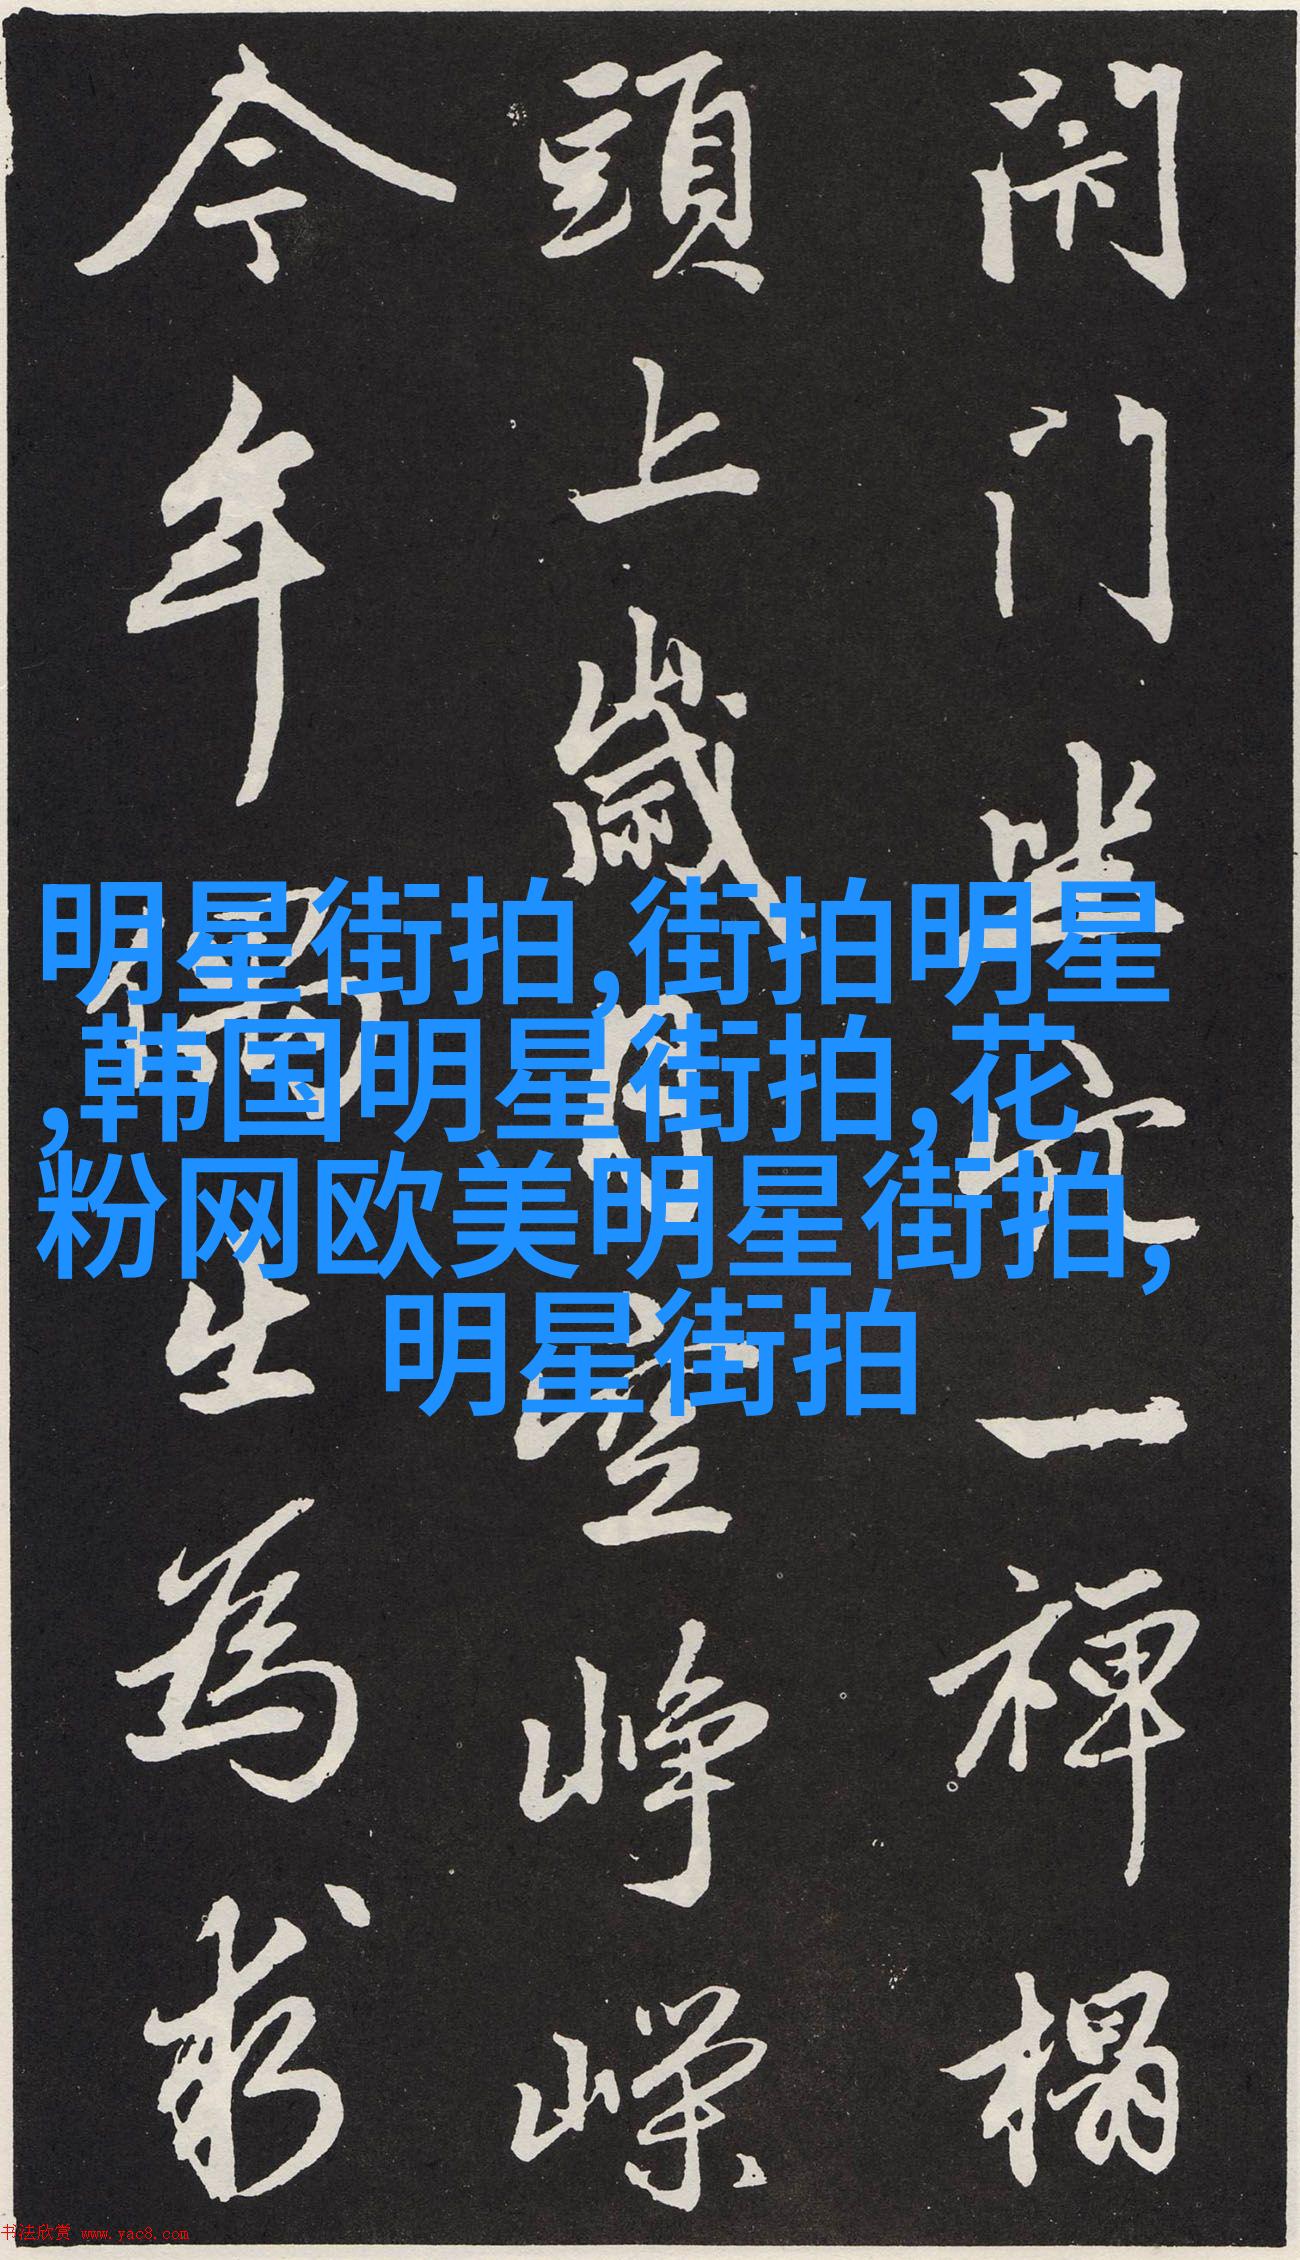 閉门坐穴一禅榻
頭上歲月空峥嵘
今年偶出為求
明星街拍,街拍明星
,韩国明星街拍,花
粉网欧美明星街拍,
明星街拍
书法欣赏 www.yac8.com